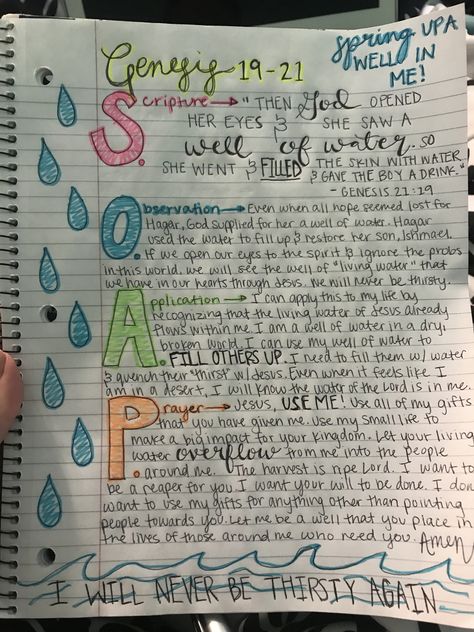 Genesis 19-21
Spring UP A
WELL IN
ME!
Scripture → "THEN God OPENED
HER EYES & SHE SAW A
well of water. SO
SHE WENT & FILLED THE SKIN WITH WATER
& GAVE THE BOY A DRINK."
- GENESIS 21:19
Observation → Even when all hope seemed lost for
Hagar, God supplied for her a well of water. Hagar
used the water to fill up & restore her son, Ishmael.
If we open our eyes to the spirit & ignore the probs
in this world, we will see the well of "living water" that
we have in our hearts through Jesus. We will never be thirsty.
Application → I can apply this to my life by
recognizing that the living water of Jesus already
flows within me. I am a well of water in a dry,
broken world. I can use my well of water to
FILL OTHERS UP. I need to fill them w/ water
& quench their "thirst" w/ Jesus. Even when it feels like I
am in a desert, I will know the water of the Lord is in me.
Prayer → Jesus, USE ME! Use all of my gifts
that you have given me. Use my small life to
make a big impact for your kingdom. Let your living
water overflow from me into the people
around me. The harvest is ripe Lord. I want to
be a reaper for you. I want your will to be done. I don
want to use my gifts for anything other than pointing
people towards you. Let me be a well that you place in
the lives of those around me who need you. Amen
I WILL NEVER BE THIRSTY AGAIN